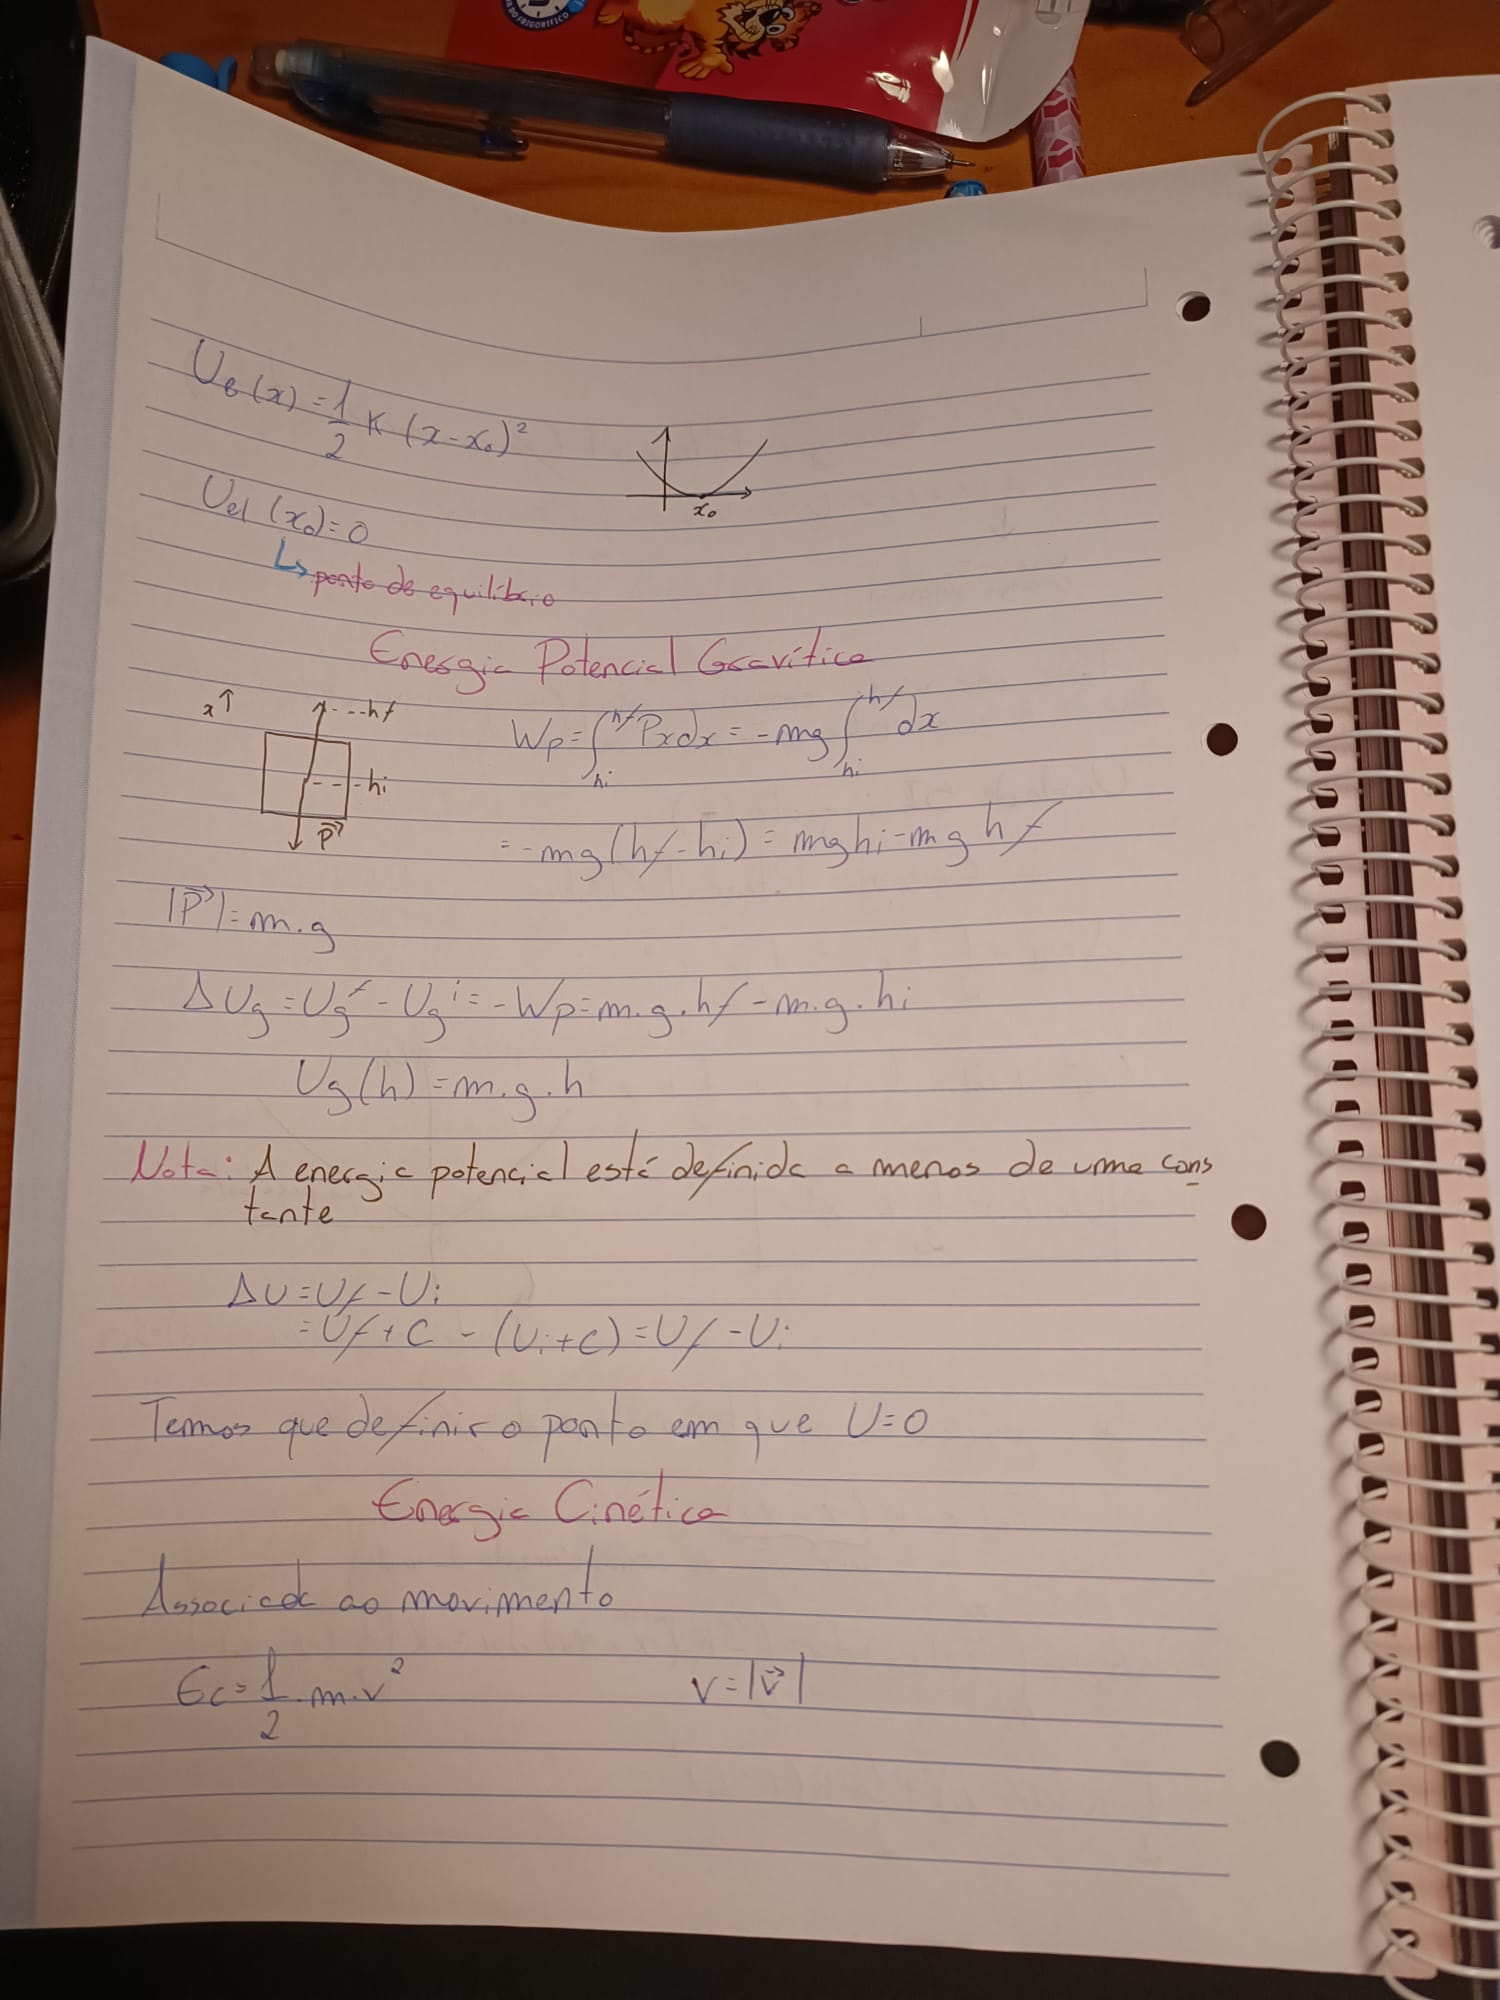 U_e(x) = 1/2 K (x-x₀)²
x₀
Uel (x₀) = 0
↳ ponto de equilíbrio
Energia Potencial Gravítica
x↑
---hf
Wp = ∫_hi^hf Px dx = -mg ∫_hi^hf dx
---hi
P⃗
= -mg (hf - hi) = mghi - mghf
|P⃗| = m.g
ΔUg = Ug^f - Ug^i = -Wp = m.g.hf - m.g.hi
Ug(h) = m.g.h
Nota: A energia potencial está definida a menos de uma cons
tante
ΔU = Uf - Ui
= Uf + C - (Ui + C) = Uf - Ui
Temos que definir o ponto em que U=0
Energia Cinética
Associada ao movimento
Ec = 1/2 . m.v² v = |v⃗|